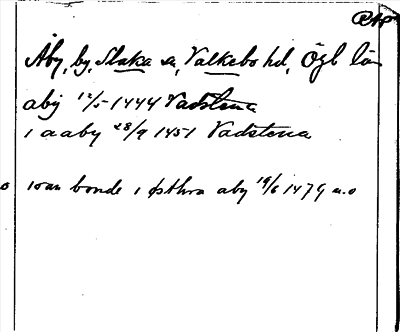 RAp
Åby, by, Slaka sn, Valkebo hd, Ögl län
aby 12/5 1444 Vadstena
i aaby 28/9 1451 Vadstena
o ioan bonde i østhra aby 19/6 1479 u.o